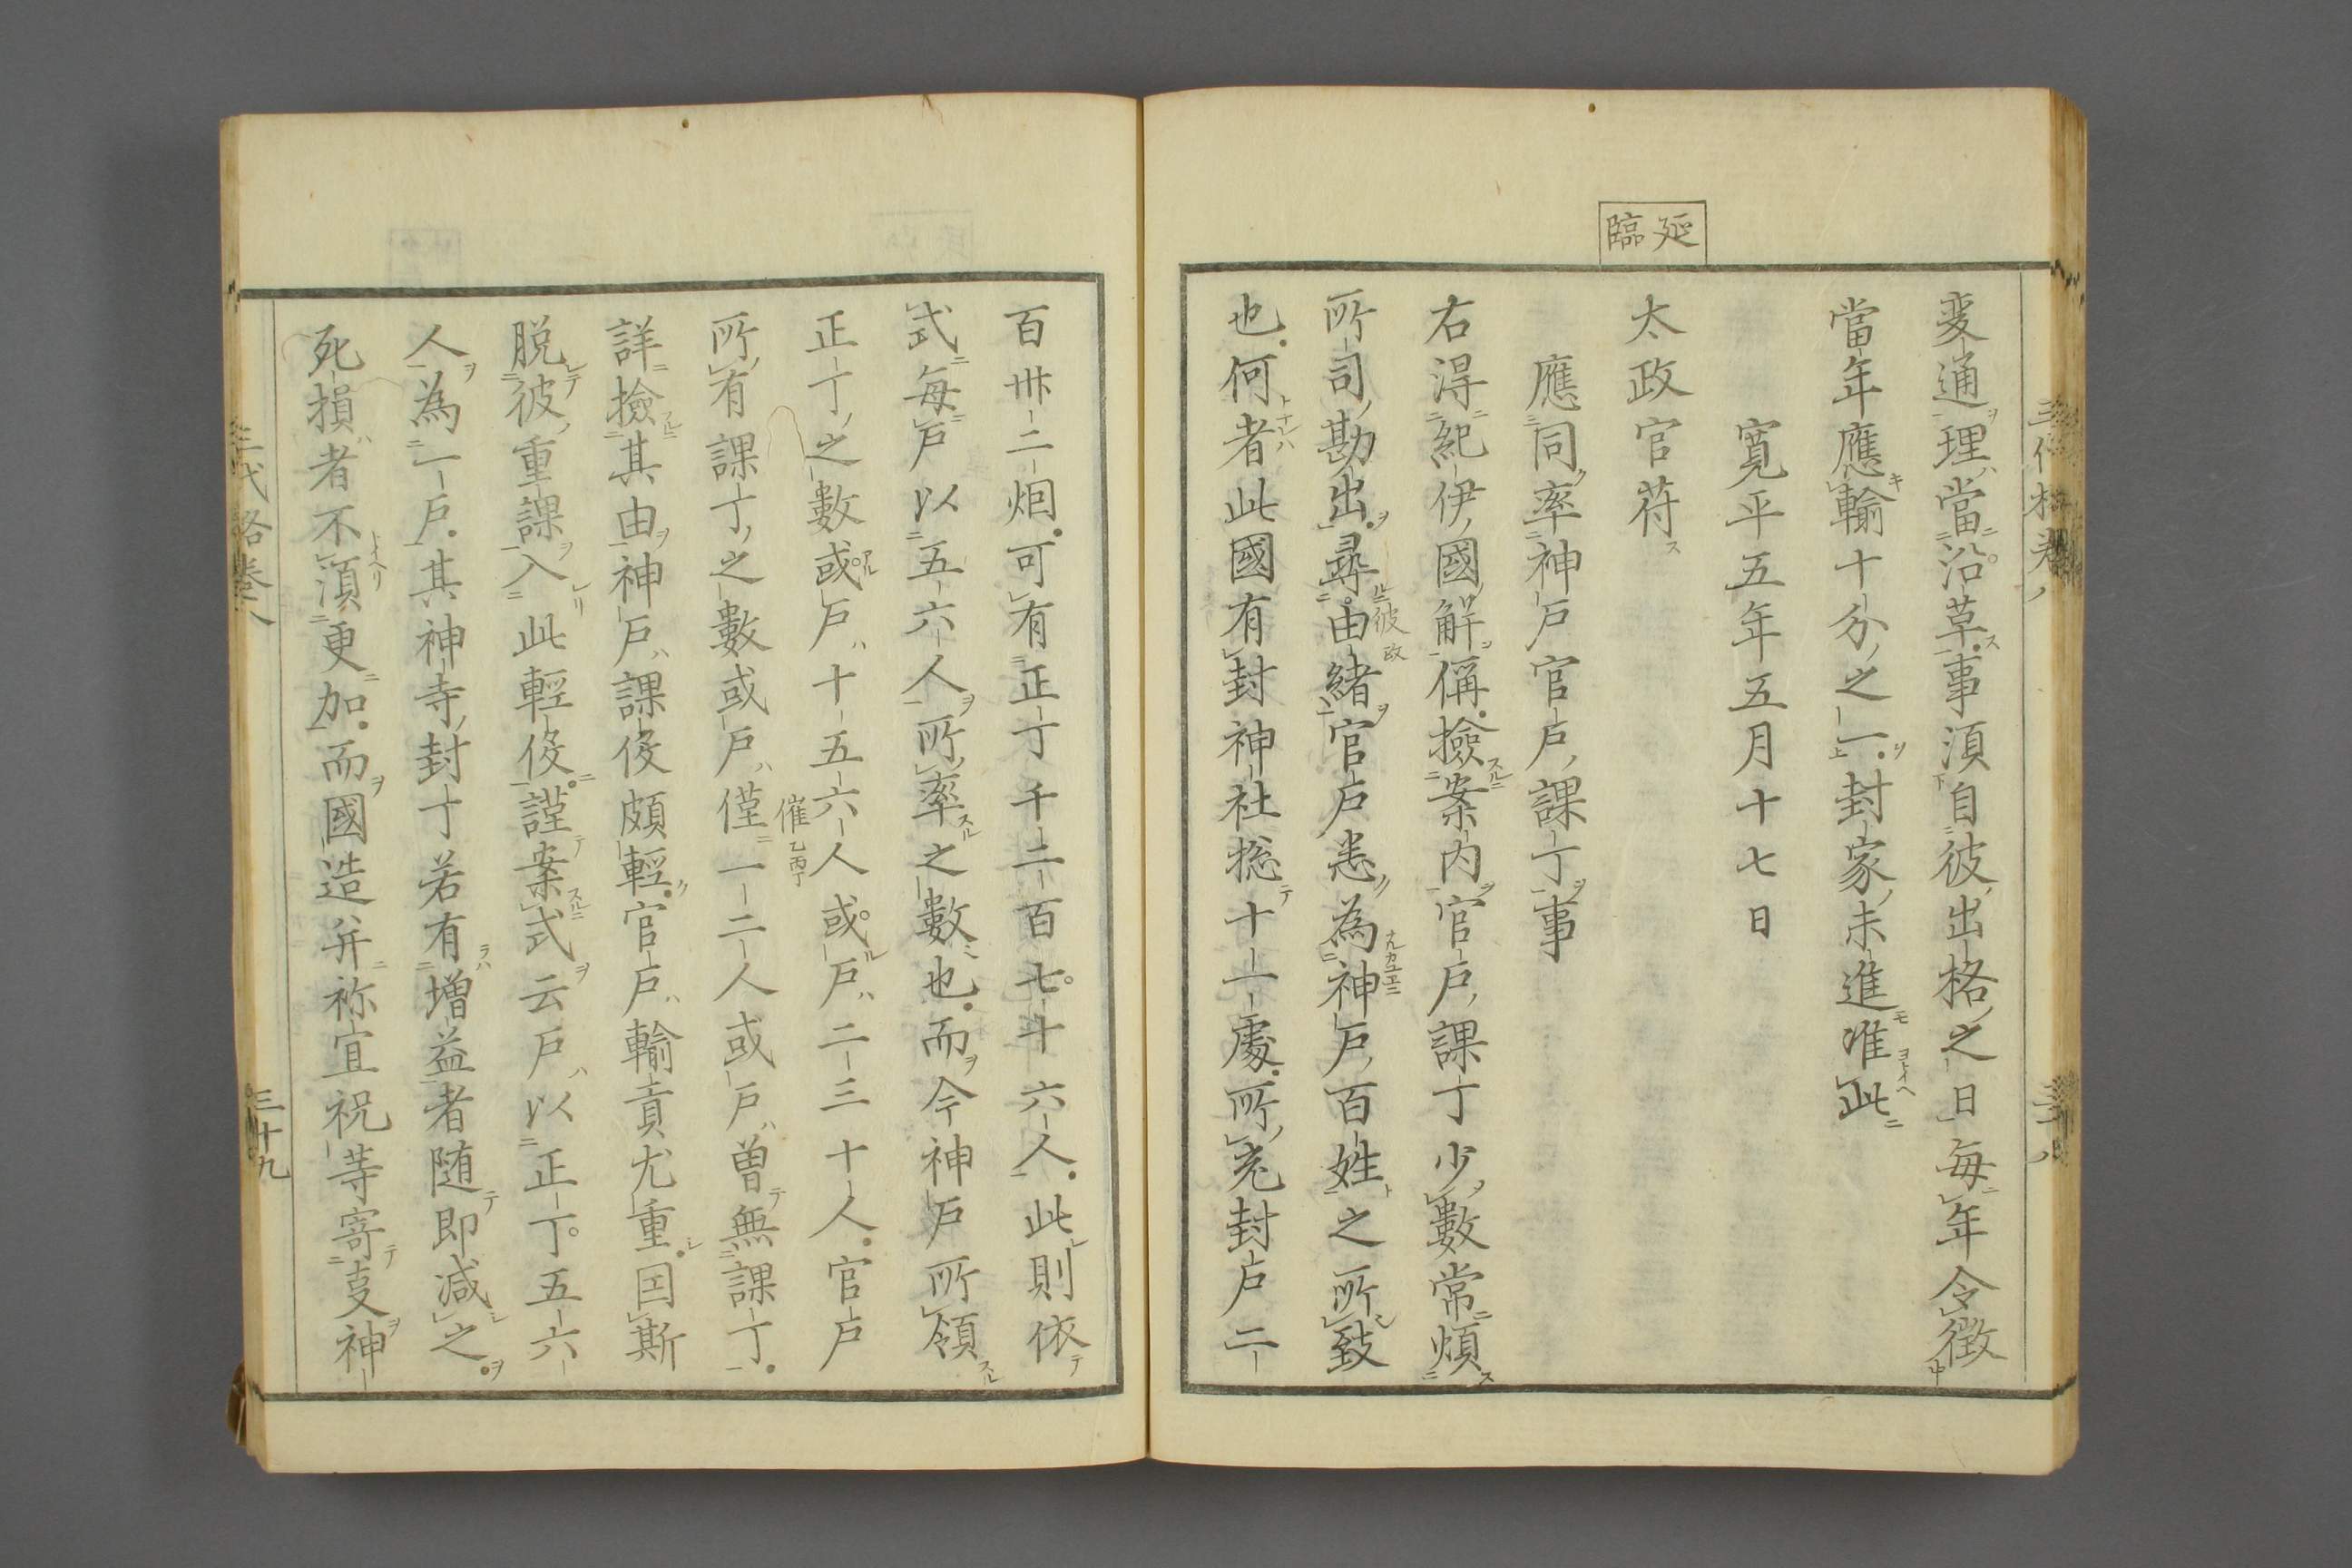 延臨
変通理當沿革事須自彼出格之日毎年令徴
當年應輸十分之一封家未進准此
寛平五年五月十七日
太政官苻
應同率神戸官戸課丁事
右淂紀伊國解偁撿案内官戸課丁少數常煩
所司勘出尋由緒官戸悉為神戸百姓之所致
也何者此國有封神社捴十一處所充封戸二
百卅二烟可有正丁千二百七十六人此則依
式毎戸以五六人所率之數也而今神戸所領
正丁之數或戸十五六人或戸二三十人官戸
所有課丁之數或戸僅一二人或戸曽無課丁
詳撿其由神戸課伇頗輕官戸輸貢尤重因斯
脱彼重課入此輕伇謹案式云戸以正丁五六
人為一戸其神寺封丁若有増益者随即减之
死損者不湏更加而國造并祢宜祝等寄㕝神
三代格巻八
三十九